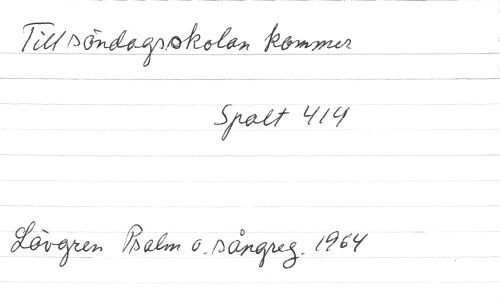 Till söndagsskolan kommer
Spalt 414
Lövgren Psalm o. sångreg. 1964